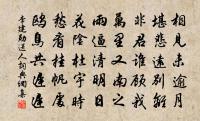 相見未逾月
堪悲遠別離
非君誰顧我
萬里又南之
雨逼清明日
花陰杜宇時
愁看挂帆處
鷗鳥共遲遲
李建勛送人詞典網集